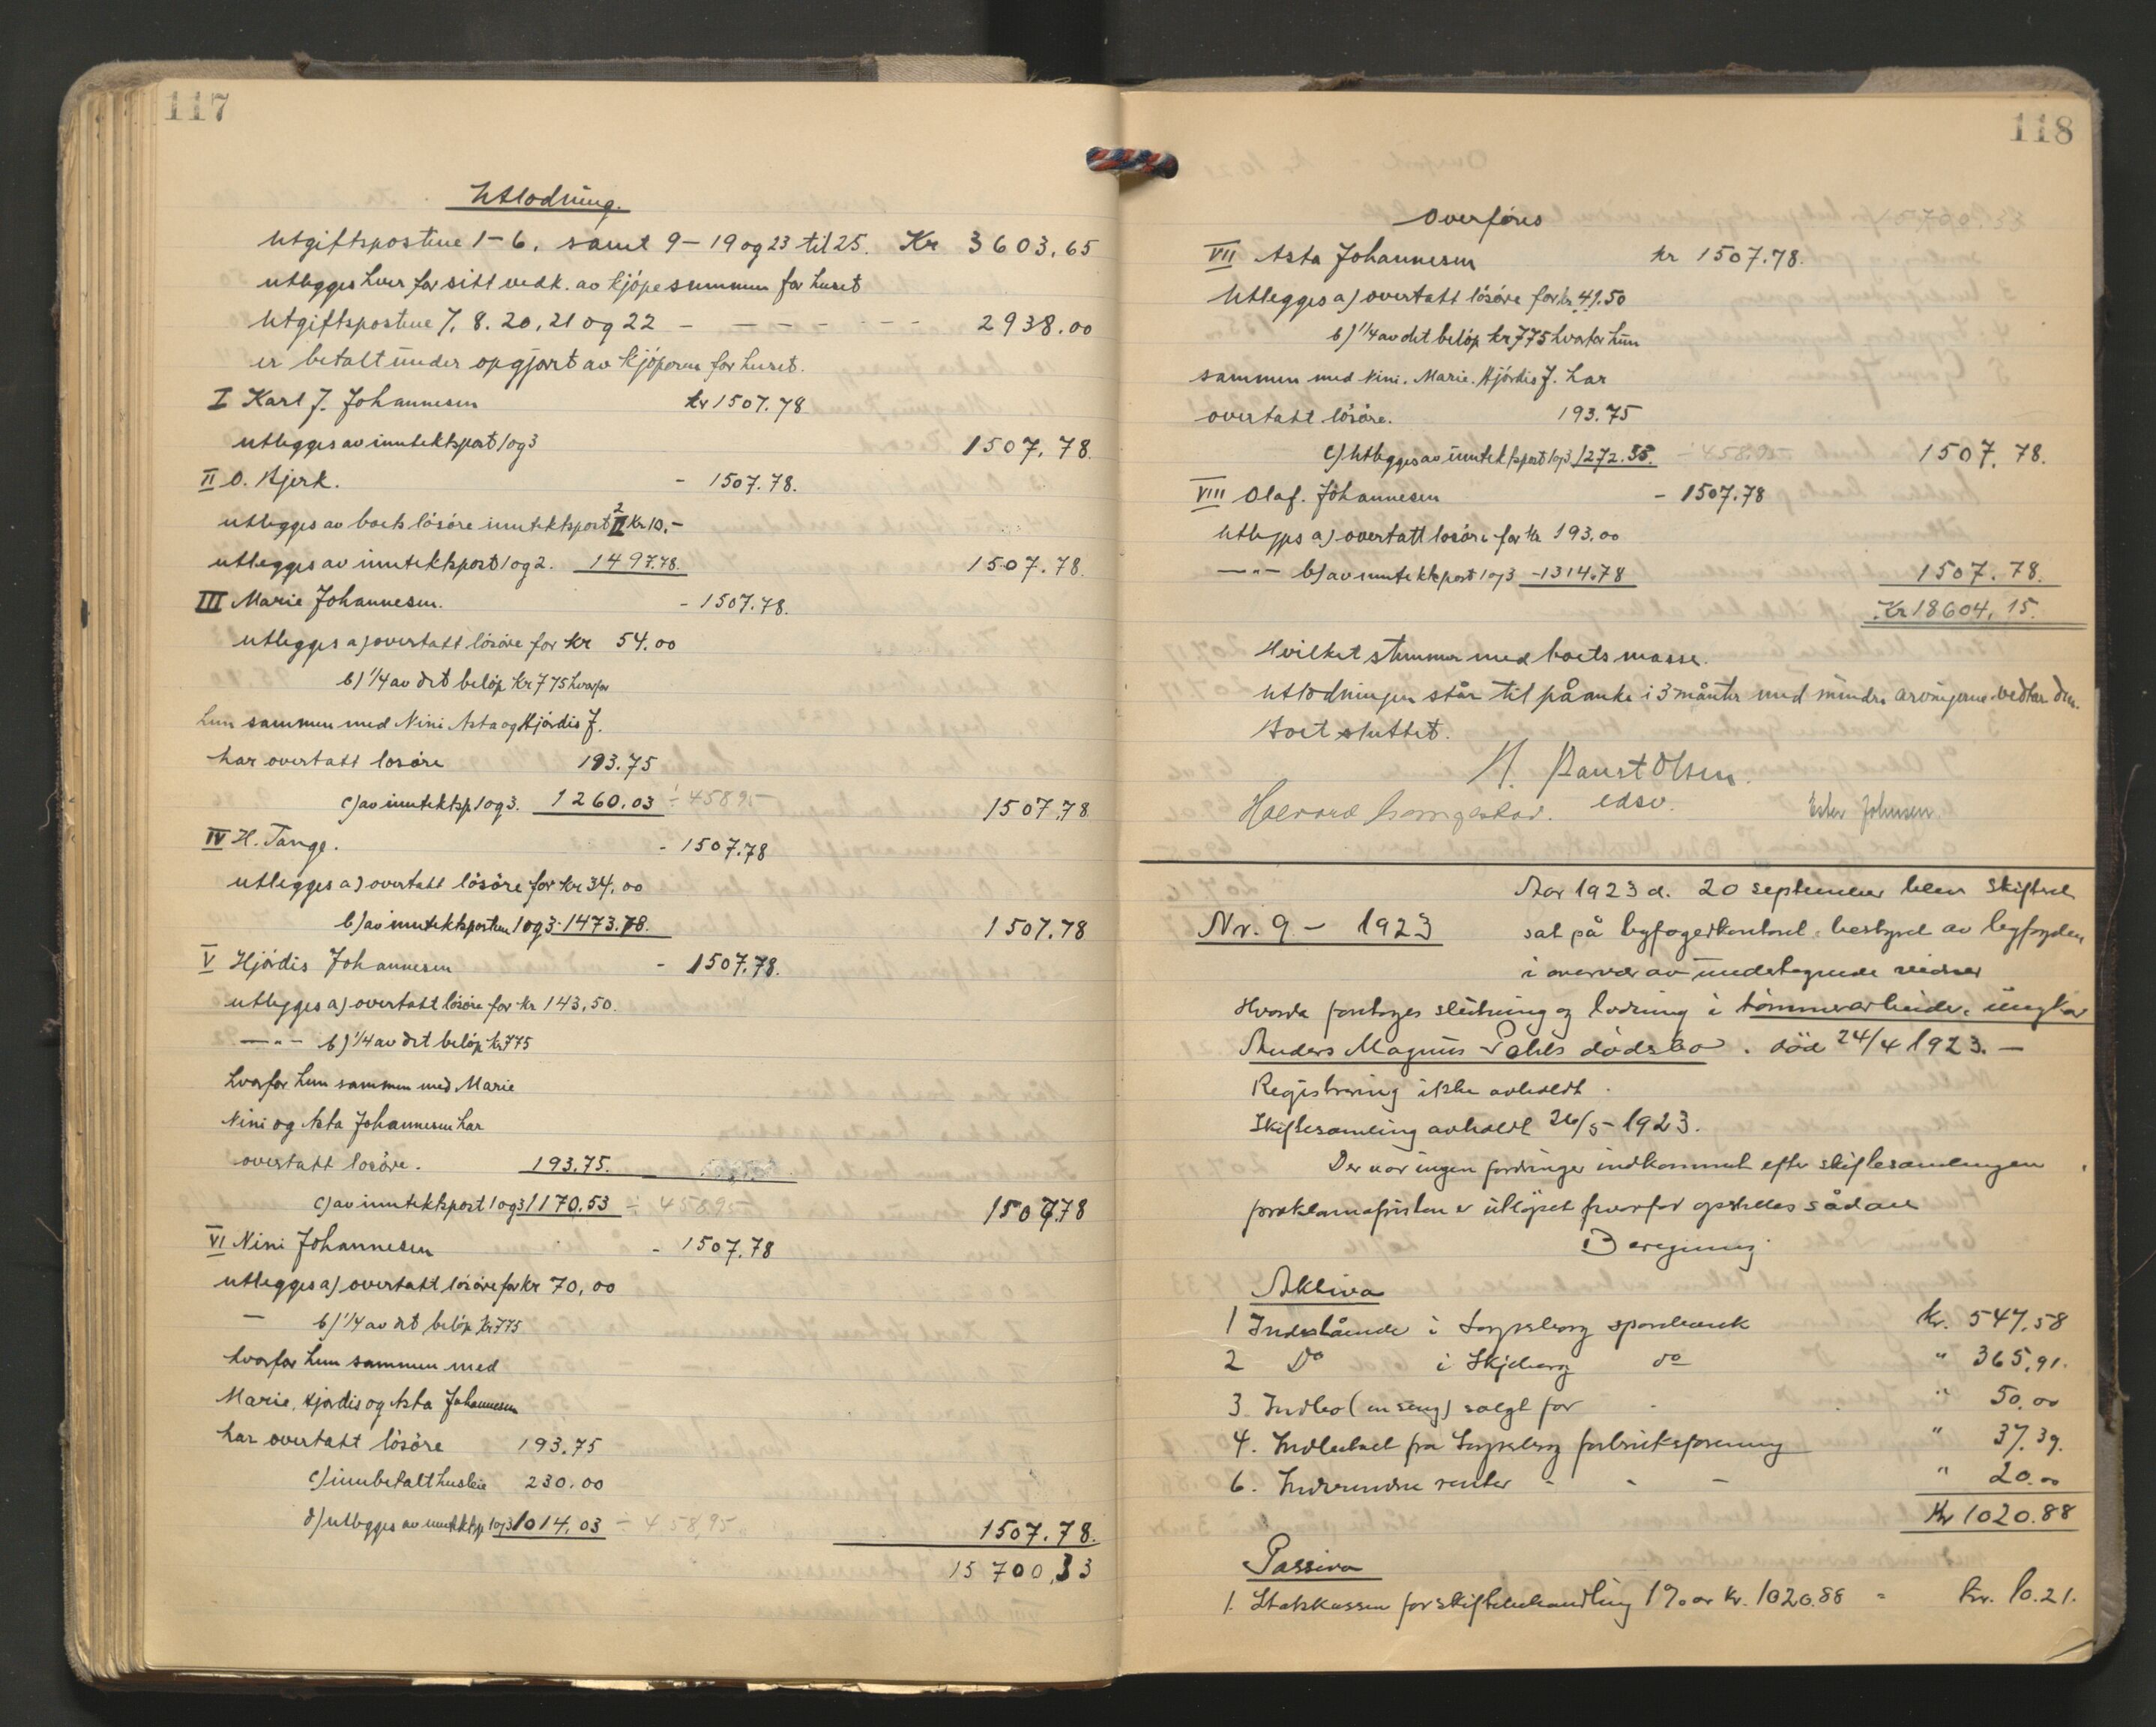 117
Utlodning.
Utgiftspostene 1-6, samt 9-19 og 23 til 25. Kr 3603,65
utlegges hver for sitt vedk. av kjöpesummen for huset
Utgiftspostene 7, 8. 20, 21 og 22 - - - - - - 2938.00
er betalt under opgjöret av kjöperen for huset.
I Karl J. Johannesen kr 1507.78
utlegges av inntektspost 1 og 3 1507.78.
II O. Bjerk. - 1507.78.
utlegges av boets lösöre inntektspost 2 Kr 10.-
utlegges av inntektspost 1 og 2. 1497.78. 1507.78.
III Marie Johannesen. - 1507.78.
utlegges a) overtatt lösöre for kr 54.00
b) 1/4 av det belöp Kr 775 hvorfor
hun sammen med Nini Asta og Hjördis J.
har overtatt losöre 193.75
c) av inntektsp 1 og 3. 1260.03 ÷ 458.95 1507.78
IV H. Tange. - 1507.78
utlegges a) overtatt lösöre for kr 34,00
b) av inntektsposten 1 og 3 - 1473.78. 1507.78
V Hjördis Johannesen - 1507.78.
utlegges a) overtatt lösöre for kr 143,50.
-"- b) 1/4 av det belöp kr 775
hvorfor hun sammen med Marie
Nini og Asta Johannesen har
overtatt losöre. 193.75.
c) av inntektspost 1 og 3 1170.53 ÷ 458.95 1507.78
VI Nini Johannesen - 1507.78
utlegges a) overtatt lösöre for kr 70,00
- b) 1/4 av det belöp kr 775
hvorfor hun sammen med
Marie, Hjördis og Asta Johannesen
har overtatt lösöre 193.75
c) innbetalt husleie 230.00
d) utlegges av inntektsp 1 og 3 1014.03 ÷ 458,95 1507.78.
15700,33
118
Overföres
VII Asta Johannesen kr 1507.78.
Utlegges a) overtatt lösöre for kr 41.50
b) 1/4 av det belöp kr 775 hvorfor hun
sammen med Nini. Marie. Hjördis J. har
overtatt lösöre. 193.75
c) Utlegges av inntektspost 1 og 3 1272.55. 1507.78.
VIII Olaf. Johannesen - 1507.78
Utlegges a) overtatt losöre for kr 193.00
-"- b) av inntektspost 1 og 3 - 1314.78 1507.78.
Kr 18604,15.
Hvilket stemmer med boets masse.
Utlodningen står til påanke i 3 måneder med mindre arvingerne vedtar den.
Boet sluttet.
H. Faust Olsen.
edsv.
Halvard Ester Johnsen.
Aar 1923 d. 20 september blev skifteret
Nr. 9 - 1923 sat på byfogedkontoret bestyret av byfogden
i overvær av undertegnede vidner
Hvorda foretoges slutning og lodning i tömmerarbeider, ungkar
Anders Magnus Dahls dödsbo. död 24/4 1923. -
Registrering ikke avholdt.
Skiftesamling avholdt 26/5 - 1923.
Der var ingen fordringer indkommet efter skiftesamlingen
proklamafristen er utlöpet hvorfor opstilles sådan
Beregning
Aktiva
1 Indestående i Sarpsborg sparebank Kr. 547,58
2 Do i Skjeberg do " 365,91.
3 Indbo (en seng) solgt for - " 50.00
4. Indbetalt fra Sarpsborg forbruksforening " 37.39.
6. Indvundne renter - - - " 20.00
Kr 1020.88
Passiva
1. Statskassen for skiftebehandling 1% av kr. 1020.88 - kr. 10.21.